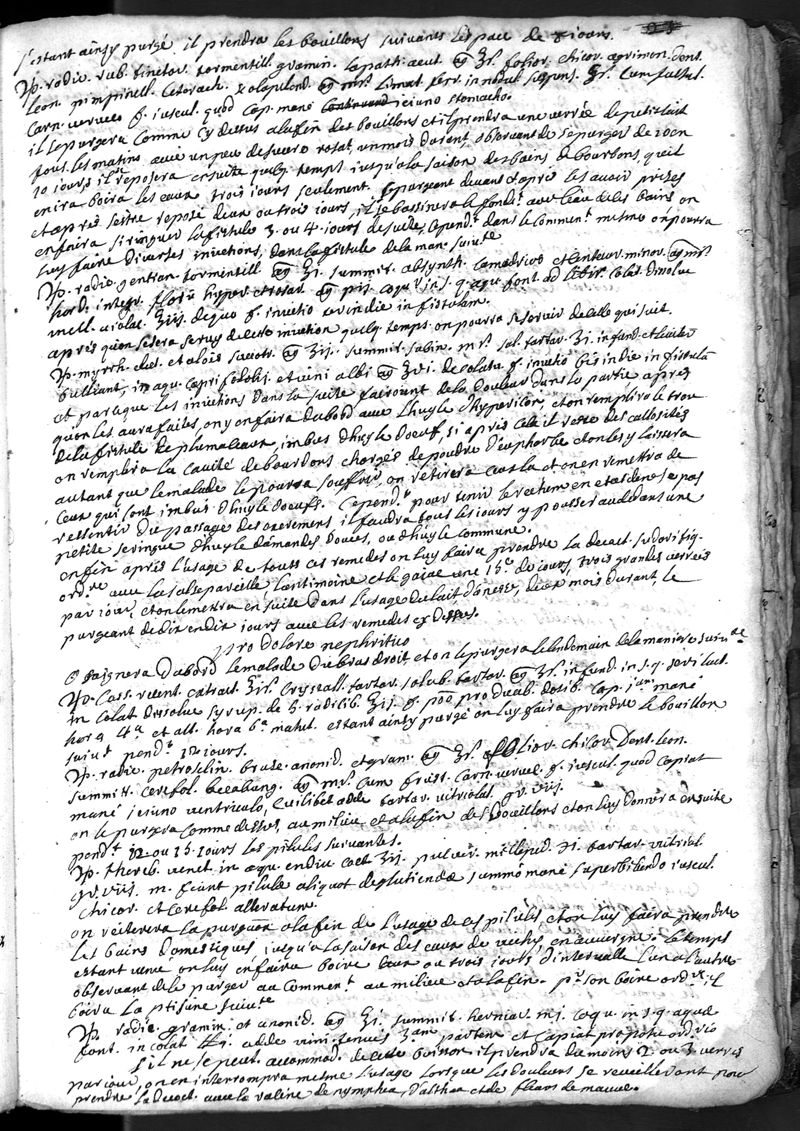 s'estant ainsy purgé il prendra les bouillons suivants l'espace de 8 jours.
℞. radic. rub. tinctor. tormentill. gramin. lapath. acut. ʒß. folior. chicor. agrimon. dent.
leon. pimpinell. Ceterach. scolopend. mß. limat. ferr. in nodul. suspens. ʒß. cum fustul.
carn. vervec. f. juscul. quod cap. mane jejuno stomacho.
il se purgera comme cy dessus a la fin des bouillons et il prendra une verrée de petit lait
tous les matins avec un peu de sucre rosat, un mois durant, observant de se purger de 10 en
10 jours il se reposera ensuite quelq temps jusqu'a la saison des bains de bourbons, qu'il
en ira boire les eaux trois jours seulement se purgeant devant et apres les avoir prises
et apres s'estre reposé deux ou trois jours, il se bassinera le fondt. avec l'eau de les bains on
en faira siringuer la fistule 3. ou 4. jours de suite, cependt. dans le comment. mesme on pourra
luy faire diverses injections, dans la fistule de la man. suivte
℞. radic. gentian. tormentill. ʒj. summit. absynth. camedrios et centaur. minor. mß.
hord. integr. florū hyper. et rosar. pij. coqu. in s. q. aqu. font. ad libir. colat. dissolve
mell. violat. ʒij. de quo f. injectio ter in die in fistulam.
apres qu'on se sera servy de cette injection quelq temps on pourra se servir de celle qui suit.
℞. myrrh. elect. et aloës succotr. ʒij. summit. sabin. mß. sal. tartar. ʒj. infund. et leviter
bulliant, in aqu. caprifolij. et vini albi ʒvj. de colatu. f. injectio bis in die in fistulâ
et parceque les injections dans la suite fairoient de la douleur dans la partie apres
qu'on les aura faites, on y en faira d'abord avec l'huyle d'hypericon, et on remplira le trou
de la fistule de plumaceaux imbus d'huyle d'oeuf, si apres cela il reste des callosités
on remplira la cavité de bourdons chargés de poudre d'euphorbe et on les y laissera
autant que le malade le pourra souffrir, on retirera ceux la et on en remettra de
ceux qui sont imbus d'huyle d'oeufs. Cependt. pour tenir le rectum en estat de ne se pas
ressentir du passage des excremens il faudra tous les jours y pousser au dedans une
petite seringue d'huyle d'amandes douces, ou d'huyle commune.
enfin apres l'usage de touts ces remedes on luy faira prendre la decoct. sudorifiq.
ordre avec la salsepareille, l'antimoine et le gaiac une 15e de jours, trois grandes verrées
par jour, et on le mettra en suite dans l'usage du lait d'anesse, deux mois durant le
purgeant de dix en dix jours avec les remedes ex dessus.
pro dolore nephritico
O saignera d'abord le malade du bras droit et on le purgera le lendemain de la maniere suivte
℞. Cass. recent. extract. ʒiß. crystall. tartar. solub. tartar. ʒß. infund. in s. q. seri lact.
in colat. dissolve syrup. de 5. radicib. ʒij. f. poō pro duab. dosib. cap. jam mane
hora 4a et alt. hora 6a matut. estant ainsy purgé on luy faira prendre le bouillon
suivt pendt 12 jours.
℞. radic. petroselin. brusc. anonid. et gram. ʒß. folior. chicor. dent. leon.
summit. cerefol. beccabung. mß. cum frust. carn. vervec. f. juscul. quod capiat
mané jejuno ventriculo, cuilibet adde tartar. vitriolat. gr. viij.
on le purgera comme dessus, au milieu et a la fin des bouillons et on luy donnera ensuite
pendt 12 ou 15 jours les pilules suivantes.
℞. thereb. venet. in aqu. endiv. coct. ʒij. pulver. milleped. ʒj. tartar. vitriol.
gr. viij. m. fiant pilulæ aliquot deglutiendæ summo mané superbibendo juscul.
chicor. et cerefol. alteratum.
on reiterera la purgaōn a la fin de l'usage de ces pilules et on luy faira prendre
les bains domestiques jusqu'a la saison des eaux de vichy en auvergne. le temps
estant venu on luy en faira boire deux ou trois jours d'intervalle l'un a l'autre
observant de le purger au comment. au milieu et a la fin. pr. son boire ordre il
boira la ptisane suivte
℞. radic. gramin. et anonid. ʒj. summit. herniar. mj. coqu. in s. q. aquæ
font. in colat. adde vini tenuis 3am partem et capiat pro potu ordrio
s'il ne se peut accommod. de cette boisson il prendra du moins 2 ou 3 verres
par jour, on en interrompra mesme l'usage lorsque les douleurs se reveilleront pour
prendre la decoct. avec la racine de nymphea, d'althæa et de fleurs de mauve.